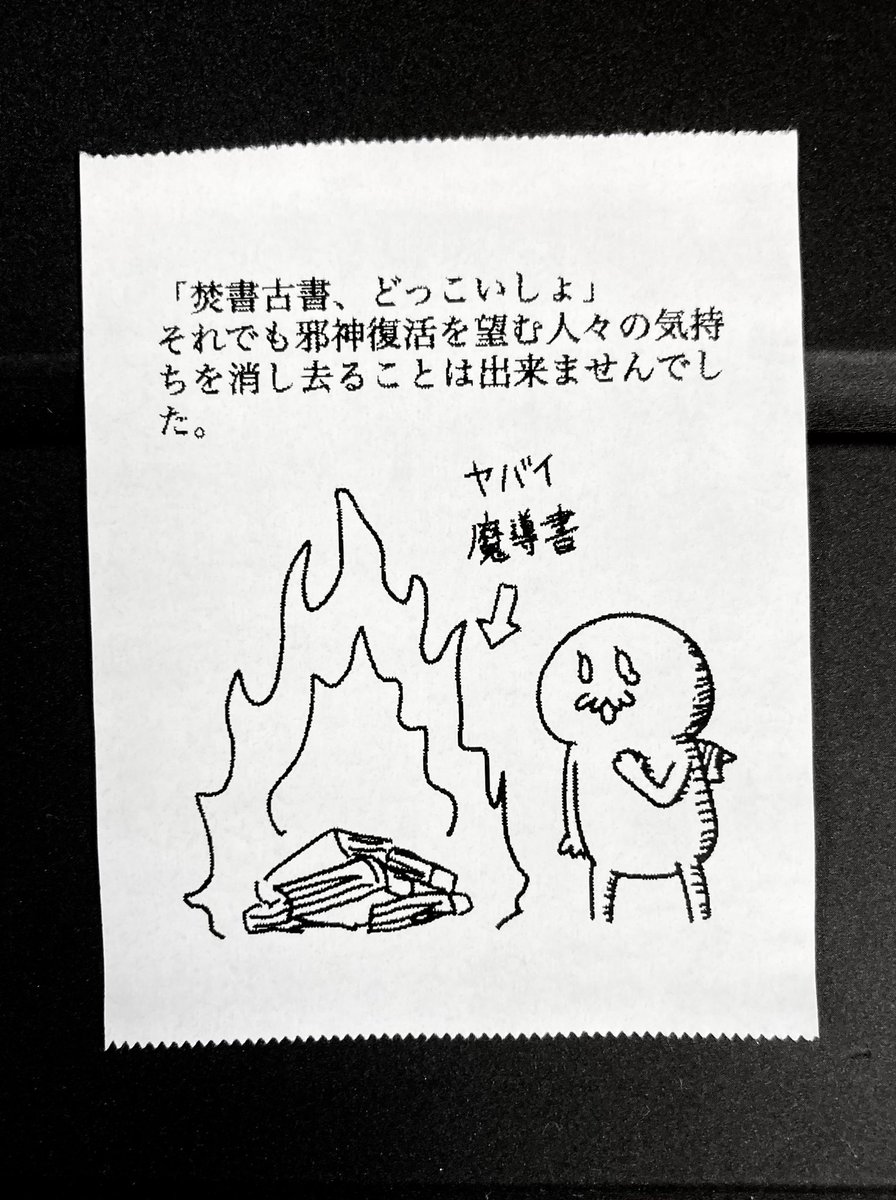 「焚書古書、どっこいしょ」
それでも邪神復活を望む人々の気持
ちを消し去ることは出来ませんでし
た。
ヤバイ
魔導書